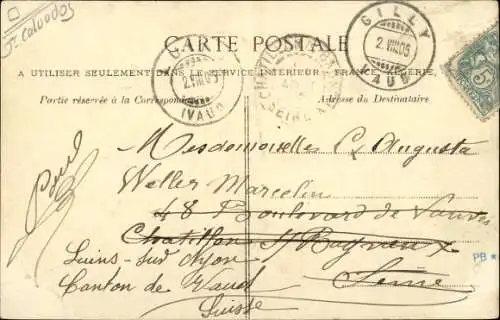 Jt Calvados
CARTE POSTALE
A UTILISER SEULEMENT DANS LE SERVICE INTÉRIEUR - FRANCE, ALGÉRIE,
Partie réservée à la Correspondance
Adresse du Destinataire
GILLY
2.VIII.05
VAUD
2.VIII.05
(VAUD)
CHATILLON
SEINE
5
Mesdemoiselles C, Augusta
Weller Marcelin
48 Boulevard de Vanves
Chatillon s/ Bagneux
Seine
Luins-sud Nyon
Canton de Vaud
Suisse
PB *